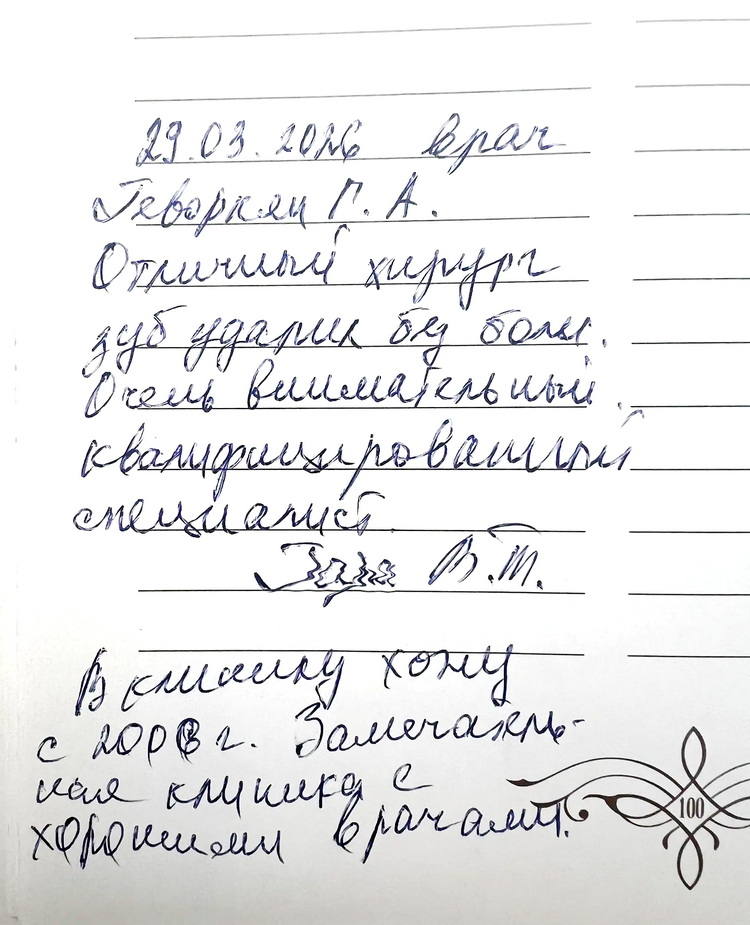 29.03.2026 врач
Геворкян Г. А.
Отличный хирург
зуб ударил без боли.
Очень внимательный.
квалифицированный
специалист.
В.Т.
В клинику хожу
с 2008 г. Замечатель-
ная клиника с
хорошими врачами.
100